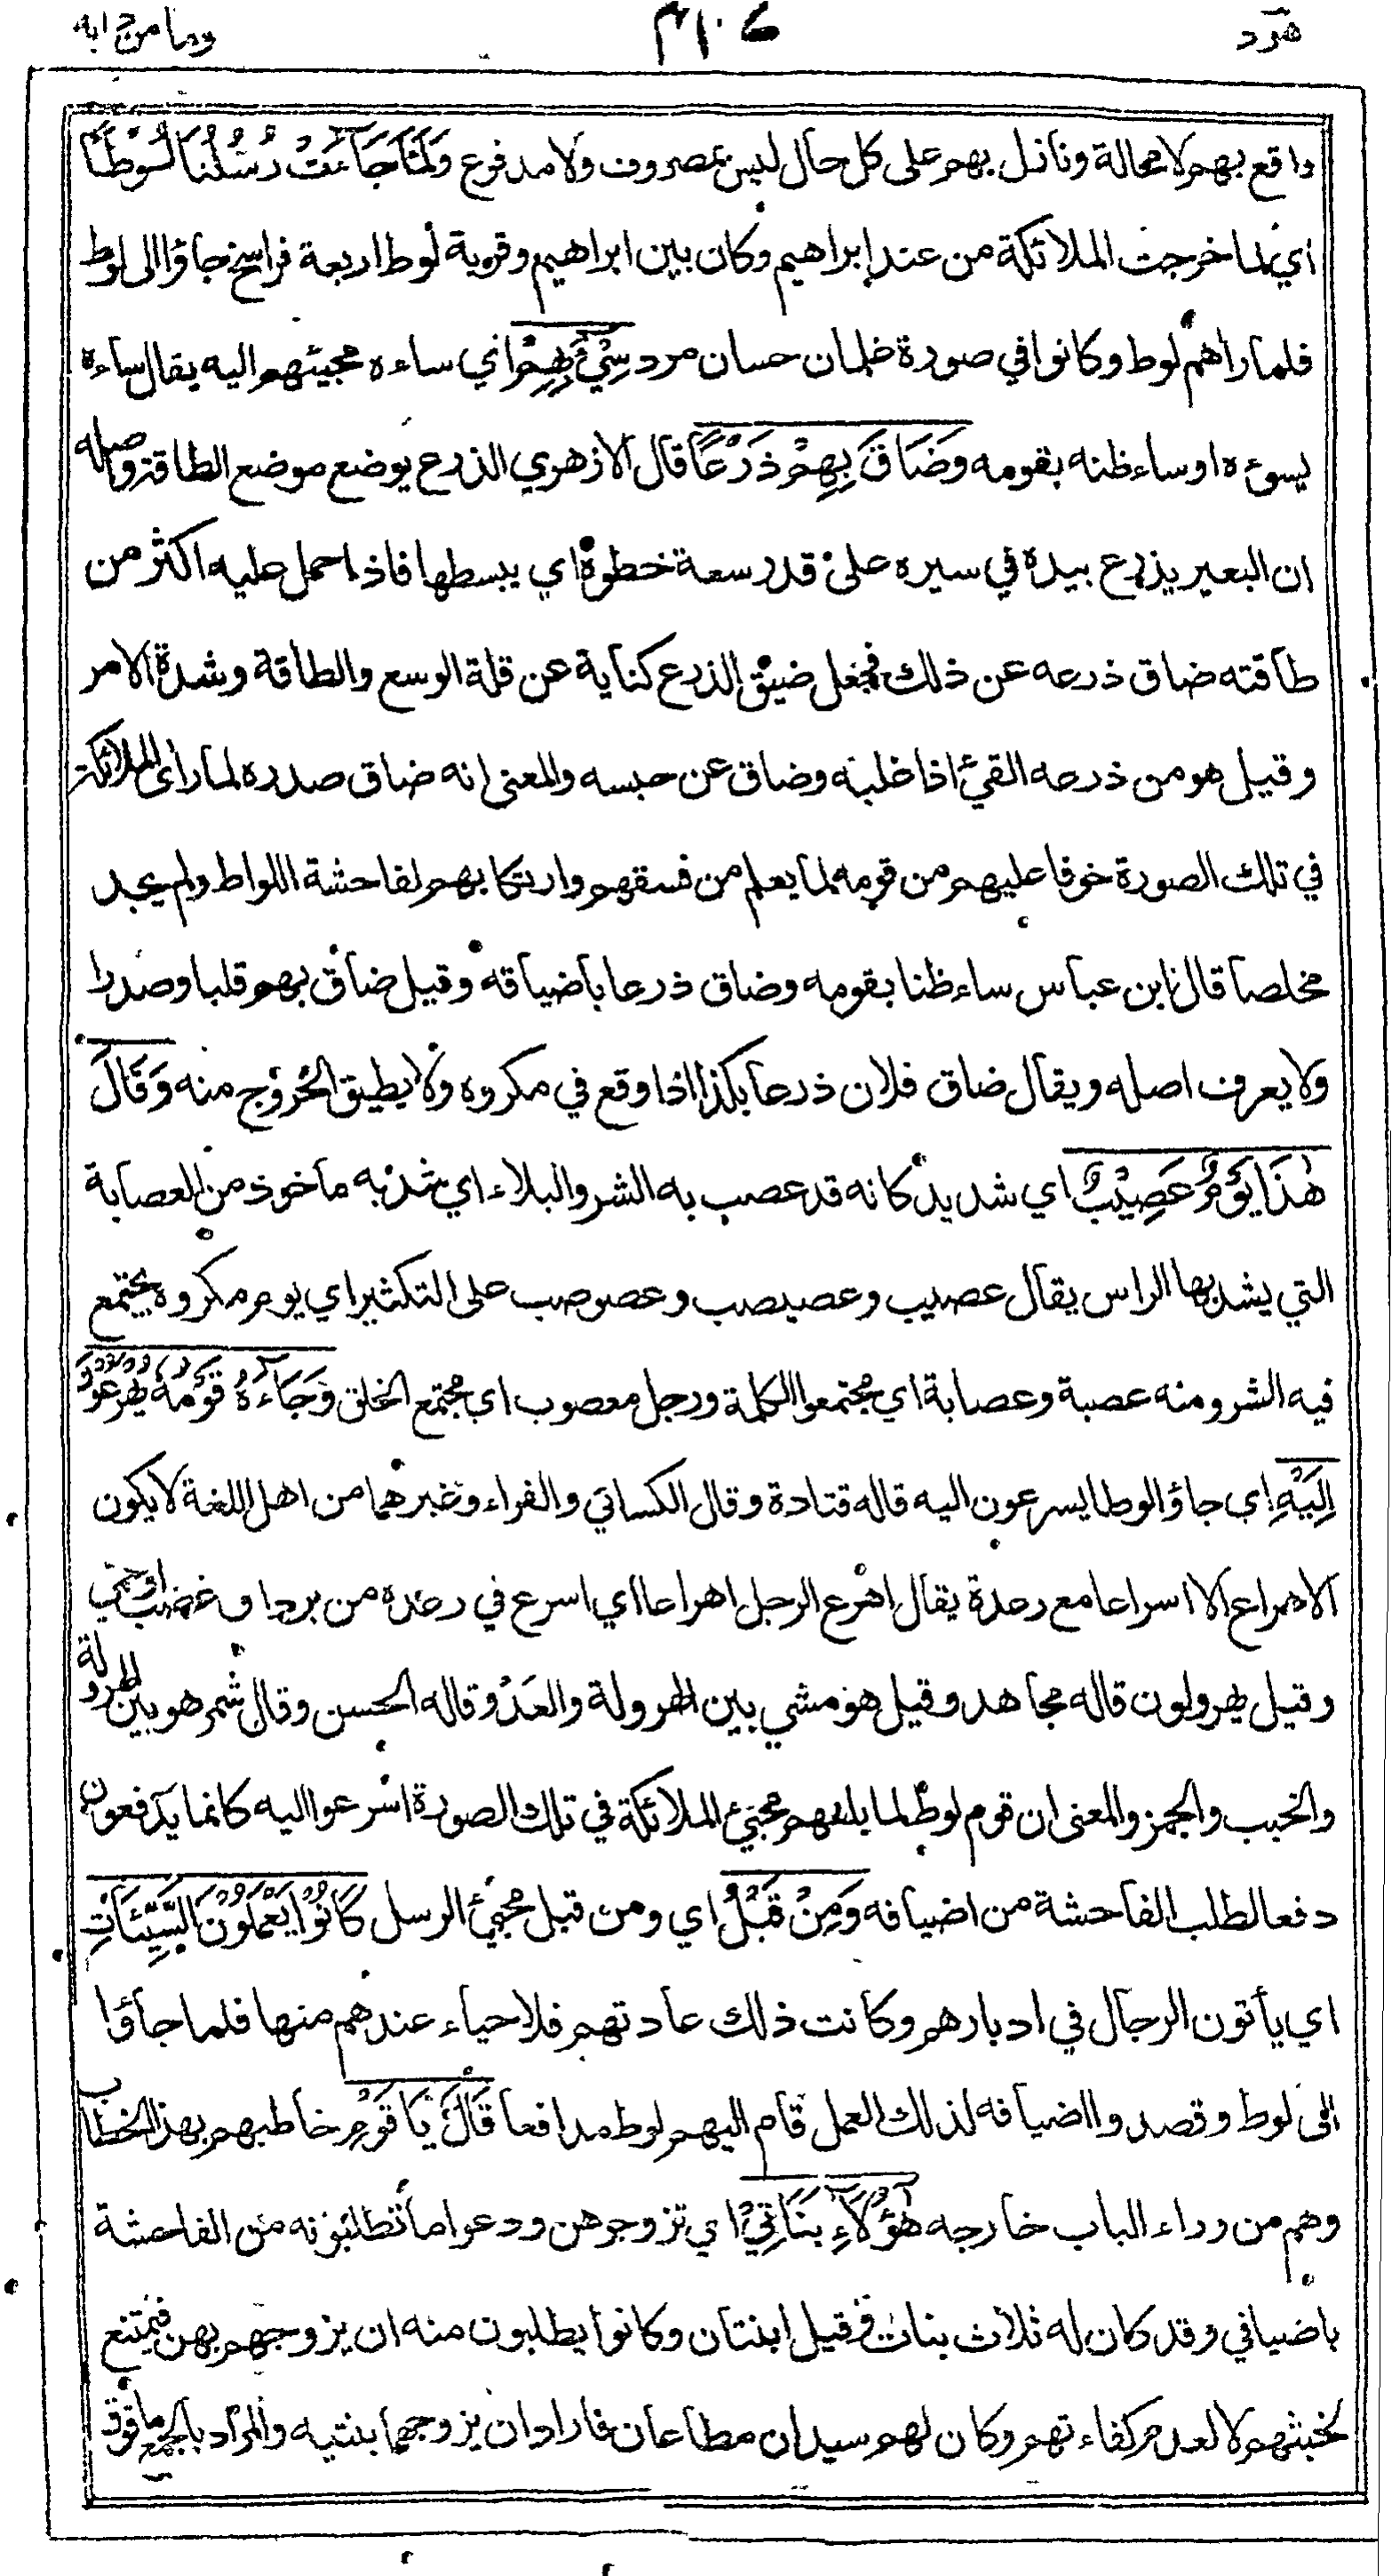 هود
وما من دابة
واقع بهم لا محالة ونازل بهم على كل حال ليس بمصروف ولا مدفوع وَلَمَّا جَاءَتْ رُسُلُنَا لُوطًا
اي لما خرجت الملائكة من عند إبراهيم وكان بين ابراهيم وقرية لوط اربعة فراسخ جاؤا الى لوط
فلما راهم لوط وكانوا في صورة غلمان حسان مرد سِيْٓءَ بِهِمْ اي ساءه مجيئهم اليه يقال ساءه
يسوءه او ساء ظنه بقومه وَضَاقَ بِهِمْ ذَرْعًا قال الازهري الذرع يوضع موضع الطاقة واصله
ان البعير يذرع بيده في سيره على قدر سعة خطوه اي يبسطها فاذا حمل عليه اكثر من
طاقته ضاق ذرعه عن ذلك فجعل ضيق الذرع كناية عن قلة الوسع والطاقة وشدة الامر
وقيل هو من ذرعه القيء اذا غلبه وضاق عن حبسه والمعنى انه ضاق صدره لما راى الملائكة
في تلك الصورة خوفا عليهم من قومه لما يعلم من فسقهم وارتكابهم لفاحشة اللواط ولم يجد
مخلصا قال ابن عباس ساء ظنا بقومه وضاق ذرعا بأضيافه وقيل ضاق بهم قلبا وصدرا
ولا يعرف اصله ويقال ضاق فلان ذرعا بكذا اذا وقع في مكروه ولا يطيق الخروج منه وَقَالَ
هٰذَا يَوْمٌ عَصِيْبٌ اي شديد كانه قد عصب به الشر والبلاء اي شد به ماخوذ من العصابة
التي يشد بها الراس يقال عصيب وعصيصب وعصوصب على التكثير اي يوم مكروه يجتمع
فيه الشر ومنه عصبة وعصابة اي مجتمعوا الكلمة ورجل معصوب اي مجتمع الخلق وَجَاءَهُ قَوْمُهُ يُهْرَعُوْنَ
اِلَيْهِ اي جاؤا لوطا يسرعون اليه قاله قتادة وقال الكسائي والفراء وغيرهما من اهل اللغة لا يكون
الاهراع الا اسراعا مع رعدة يقال اهرع الرجل اهراعا اي اسرع في رعدة من برد او غضب او حمى
وقيل يهرولون قاله مجاهد وقيل هو مشي بين الهرولة والعَدْو قاله الحسن وقال شمر هو بين الهرولة
والخبب والجمز والمعنى ان قوم لوط لما بلغهم مجيء الملائكة في تلك الصورة اسرعوا اليه كانما يدفعون
دفعا لطلب الفاحشة من اضيافه وَمِنْ قَبْلُ اي ومن قبل مجيء الرسل كَانُوْا يَعْمَلُوْنَ السَّيِّئَاتِ
اي يأتون الرجال في ادبارهم وكانت ذلك عادتهم فلا حياء عندهم منها فلما جاؤا
الى لوط وقصدوا اضيافه لذلك العمل قام اليهم لوط مدافعا قَالَ يَا قَوْمِ خاطبهم بهذا الخطاب
وهم من وراء الباب خارجه هٰؤُلَاءِ بَنَاتِيْ اي تزوجوهن ودعوا ما تطلبونه من الفاحشة
باضيافي وقد كان له ثلاث بنات وقيل ابنتان وكانوا يطلبون منه ان يزوجهم بهن فيمتنع
لخبثهم لا لعدم كفاءتهم وكان لهم سيدان مطاعان فاراد ان يزوجهما بنتيه والمراد بالجمع ما فوق